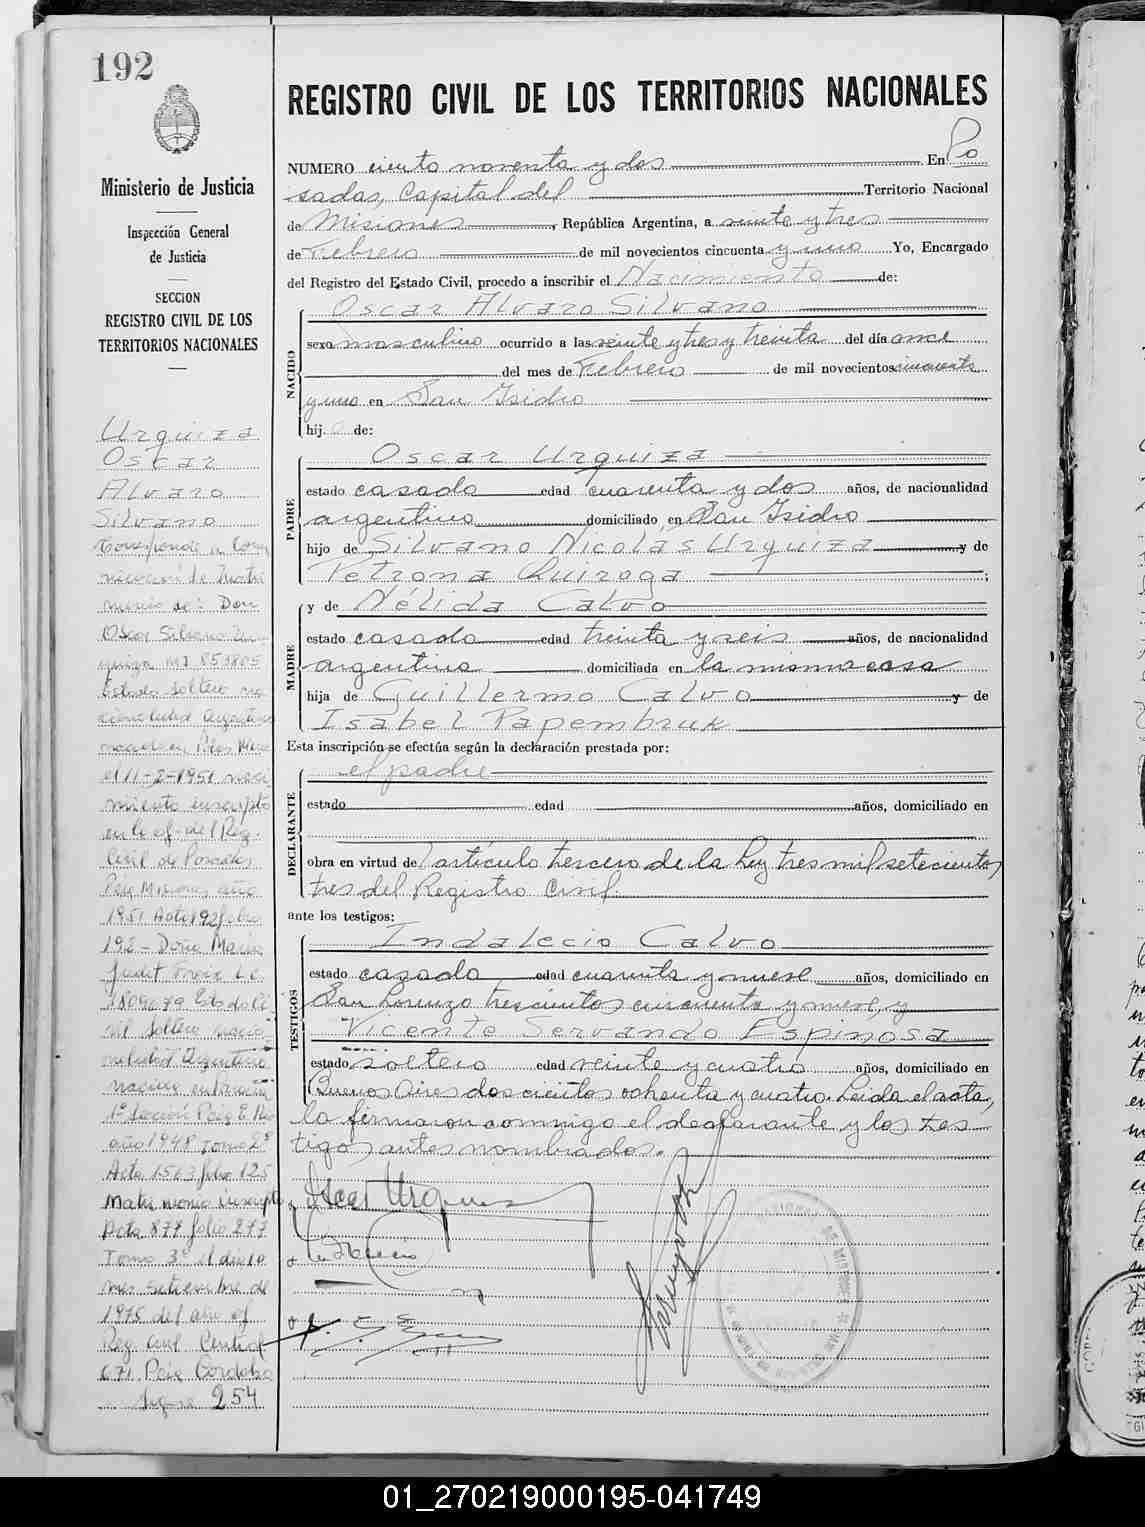 192
Ministerio de Justicia
Inspección General
de Justicia
SECCION
REGISTRO CIVIL DE LOS
TERRITORIOS NACIONALES
Urquiza
Oscar
Alvaro
Silvano
Corresponde a
de
de: Don
Oscar Silvano
MI
Estado soltero
Argentino
el 11-2-1951
miento inscripto
en la of. del Reg.
Civil de Posadas
Pcia Misiones año
1951 Acta 192 folio
192 - Doña Maria
Judit
Est. de Ci-
vil soltera nacio-
nalidad Argentina
1ª Sección Pcia E. Rios
año 1948 Tomo 2º
Acta 1563 folio 125
Matrimonio inscripto
Acta 877 folio 277
Tomo 3º el dia 10
mes setiembre de
1975 del año of.
Reg. Civil Central
671 Pcia Cordoba
Sigue 254
REGISTRO CIVIL DE LOS TERRITORIOS NACIONALES
NUMERO ciento noventa y dos En Po
sadas, Capital del Territorio Nacional
de Misiones, República Argentina, a veinte y tres
de Febrero de mil novecientos cincuenta y uno Yo, Encargado
del Registro del Estado Civil, procedo a inscribir el Nacimiento de:
NACIDO
Oscar Alvaro Silvano
sexo masculino ocurrido a las veinte y tres y treinta del día once
del mes de Febrero de mil novecientos cincuenta
y uno en San Isidro
hijo de:
PADRE
Oscar Urquiza
estado casado edad cuarenta y dos años, de nacionalidad
argentino domiciliado en San Isidro
hijo de Silvano Nicolás Urquiza y de
Petrona Quiroga;
MADRE
y de Nélida Calvo
estado casada edad treinta y seis años, de nacionalidad
argentina domiciliada en la misma casa
hija de Guillermo Calvo y de
Isabel Papembruk
Esta inscripción se efectúa según la declaración prestada por:
DECLARANTE
el padre
estado edad años, domiciliado en
obra en virtud del artículo tercero de la Ley tres mil setecientos
tres del Registro Civil.
ante los testigos:
TESTIGOS
Indalecio Calvo
estado casado edad cuarenta y nueve años, domiciliado en
San Lorenzo trescientos cincuenta y nueve, y
Vicente Servando Espinosa
estado soltero edad veinte y cuatro años, domiciliado en
Buenos Aires doscientos ochenta y cuatro. Leída el acta,
la firmaron conmigo el declarante y los tes-
tigos antes nombrados.
Oscar Urquiza
01_270219000195-041749